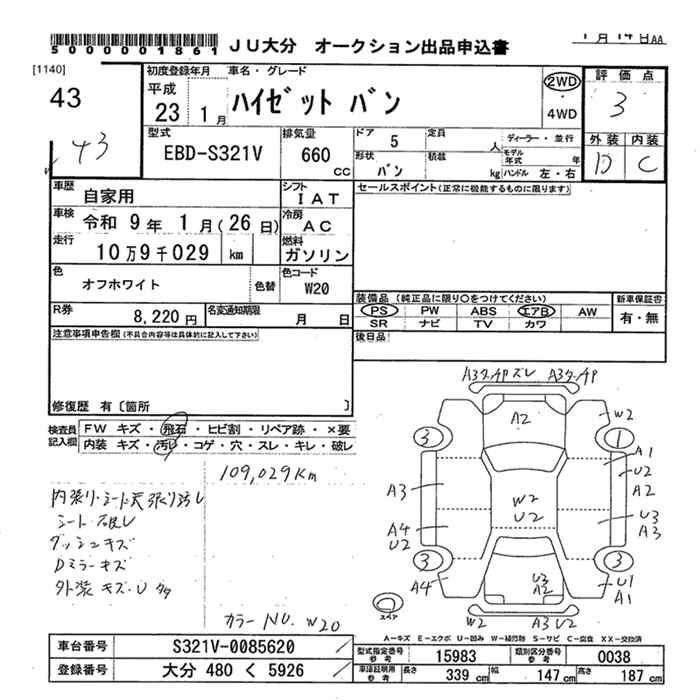 5000001861 JU大分 オークション出品申込書
1月14日AA
[1140]
43
43
初度登録年月
平成
23 1月
車名・グレード
ハイゼット バン
2WD
・
4WD
評価点
3
型式
EBD-S321V
排気量
660
cc
ドア 5
定員
人
ディーラー・並行
モデル年式 年
形状 バン
積載
kg
ハンドル 左・右
外装 内装
D C
車歴 自家用
シフト IAT
セールスポイント(正常に機能するものに限ります)
車検 令和 9年 1月(26日)
冷房 AC
走行 10万9千029 km
燃料 ガソリン
色 オフホワイト
色替
色コード W20
装備品 (純正品に限り〇をつけてください)
PS PW ABS エアB AW
SR ナビ TV カワ
新車保証書
有・無
R券 8,220円
名変通知期限 月 日
後日品
注意事項申告欄(不具合内容等は具体的に記入して下さい)
修復歴 有〔箇所 〕
検査員記入欄
FW キズ・飛石・ヒビ割・リペア跡・×要
内装 キズ・汚レ・コゲ・穴・スレ・キレ・破レ
109,029Km
内張リ・シート天張リ汚レ
シート破レ
ダッシュキズ
Dミラーキズ
外装キズU多
カラーNO. W20
A3 A3
A2 W2
3 1
A1
U2
A2
A3
W2
U2
U3
A3
A4
U2
3 3
A4
U3
A2
U1
A1
スペア
W2 A3 U2
A-キズ E-エクボ U-凹み W-補修跡 S-サビ C-腐食 XX-交換済
車台番号 S321V-0085620
登録番号 大分 480 く 5926
型式指定番号 参考 15983
類別区分番号 参考 0038
車庫証明用 参考 長さ 339 cm 幅 147 cm 高さ 187 cm